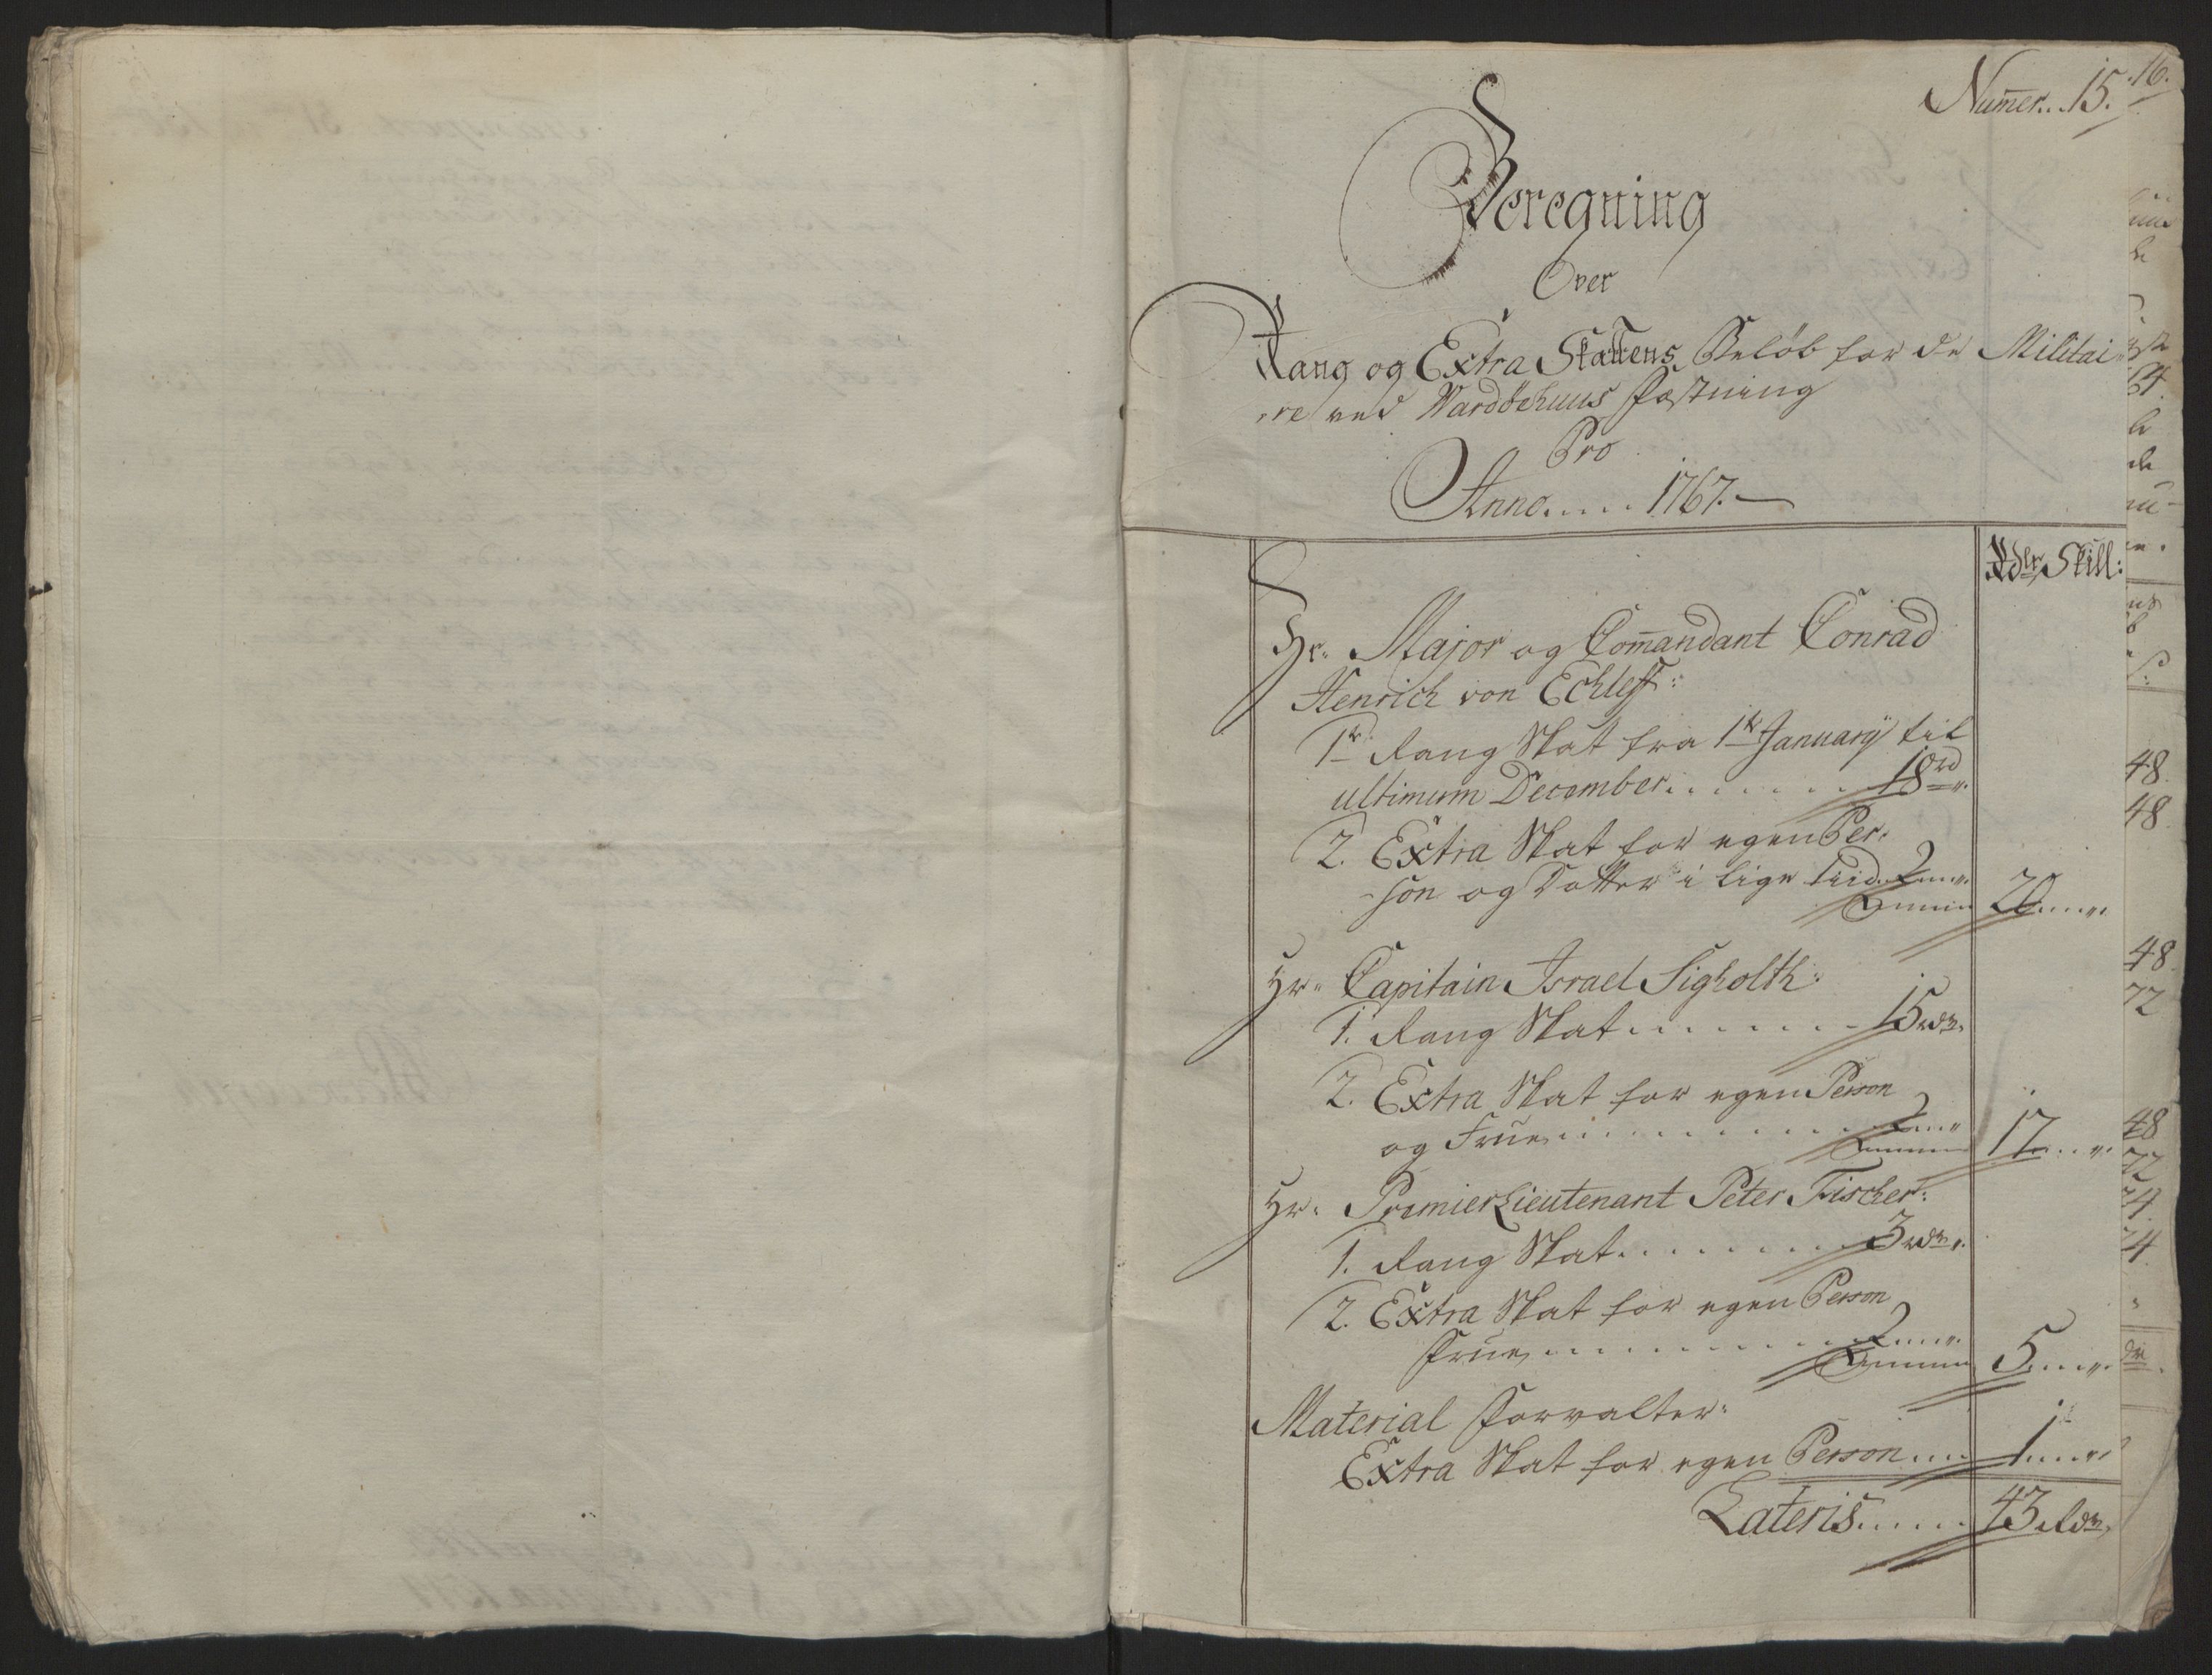 Numer...15.
16.
Beregning
Over
Rang og Extra Skattens Beløb for de Militai
re ved Wardøehuus Fæstning
Pro
Anno..... 1767.
Rdlr Skill:
Hr. Major og Com̄andant Conrad
Henrich von Echleff:
1te Rang Skat fra 1te January til
ultimum December....... 18rd „.
2. Extra Skat for egen Per-
son og Dotter i lige tiid. 2 „.
20 „.
Hr. Capitain Israel Sigholth:
1. Rang Skat....... 15rdr.
2. Extra Skat for egen Person
og Frue.......... 2 „
17 „.
Hr. PremierLieutenant Peter Fischer:
1. Rang Skat....... 3rdr „.
2. Extra Skat for egen Person
Frue.......... 2 „.
5 „.
Material Forvalter:
Extra Skat for egen Person.... 1 „
Lateris...... 43 Rdr.
48
48
48
72
48
72